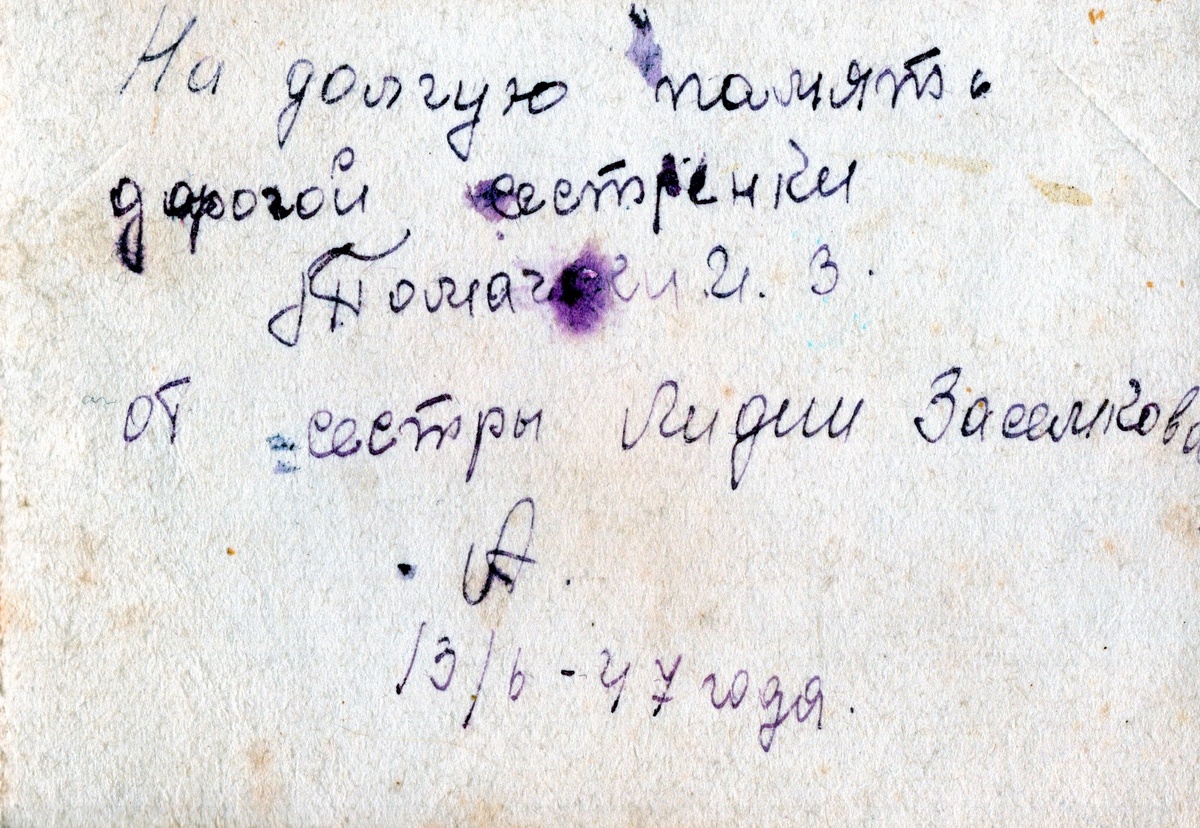 На долгую память
дорогой сестрёнки
Томачки И. З.
от сестры Лидии Заселкова
А.
13/6-47 года.